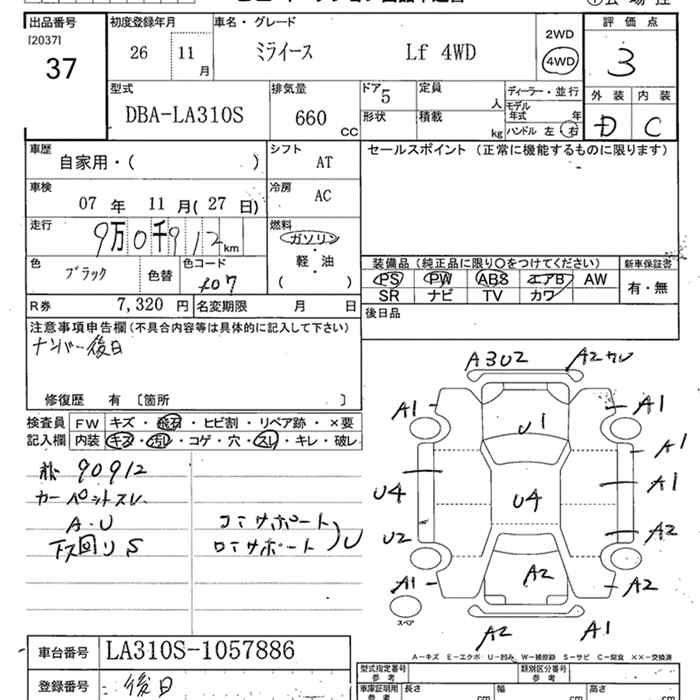 出品番号
[2037]
37
初度登録年月
26 11 月
車名・グレード
ミライース Lf 4WD
2WD
4WD
評価点
3
外装 内装
D C
型式
DBA-LA310S
排気量
660 cc
ドア 5
形状
定員 人
積載 kg
ディーラー・並行
モデル年式 年
ハンドル 左 右
車歴
自家用・( )
シフト
AT
セールスポイント (正常に機能するものに限ります)
車検
07 年 11 月(27 日)
冷房
AC
走行
9万0千912 km
燃料
ガソリン
軽・油
( )
色
ブラック
色替
色コード
X07
装備品 (純正品に限り〇をつけてください)
新車保証書
PS PW ABS エアB AW
SR ナビ TV カワ
有・無
R券 7,320 円
名変期限 月 日
後日品
注意事項申告欄 (不具合内容等は具体的に記入して下さい)
ナンバー後日
修復歴 有 〔箇所 〕
検査員
記入欄
FW キズ・飛石・ヒビ割・リペア跡・×要
内装 キズ・汚レ・コゲ・穴・スレ・キレ・破レ
90912
カーペットスレ
A・U
下回りS
コアサポート
ロアサポート
U
A3U2
A2カレ
A1
A1
U1
A1
A1
U4
U4
U2
A2
A1
A2
A2
スペア
A2
A1
A-キズ E-エクボ U-凹み W-補修跡 S-サビ C-腐食 ××-交換済
車台番号
LA310S-1057886
登録番号
後日
型式指定番号
参考
類別区分番号
参考
車庫証明用
参考
長さ cm
幅 cm
高さ cm